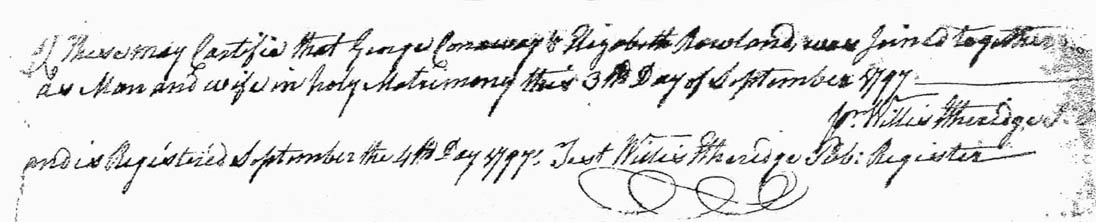 These may Cartifie that George Conaway & Elizabeth Rowland, was Joined together
as Man and wife in holy Matrimony this 3th Day of September 1797
Willis Etheridge
and is Registered September the 4th Day 1797. Test Willis Etheridge Pub: Register